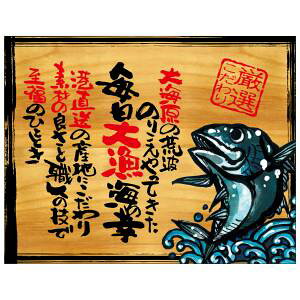 大海原の荒波
のりこえやってきた
毎日大漁海の幸
港直送の産地にこだわり
素材の良さと職人の技で
至福のひととき
厳選
こだわり